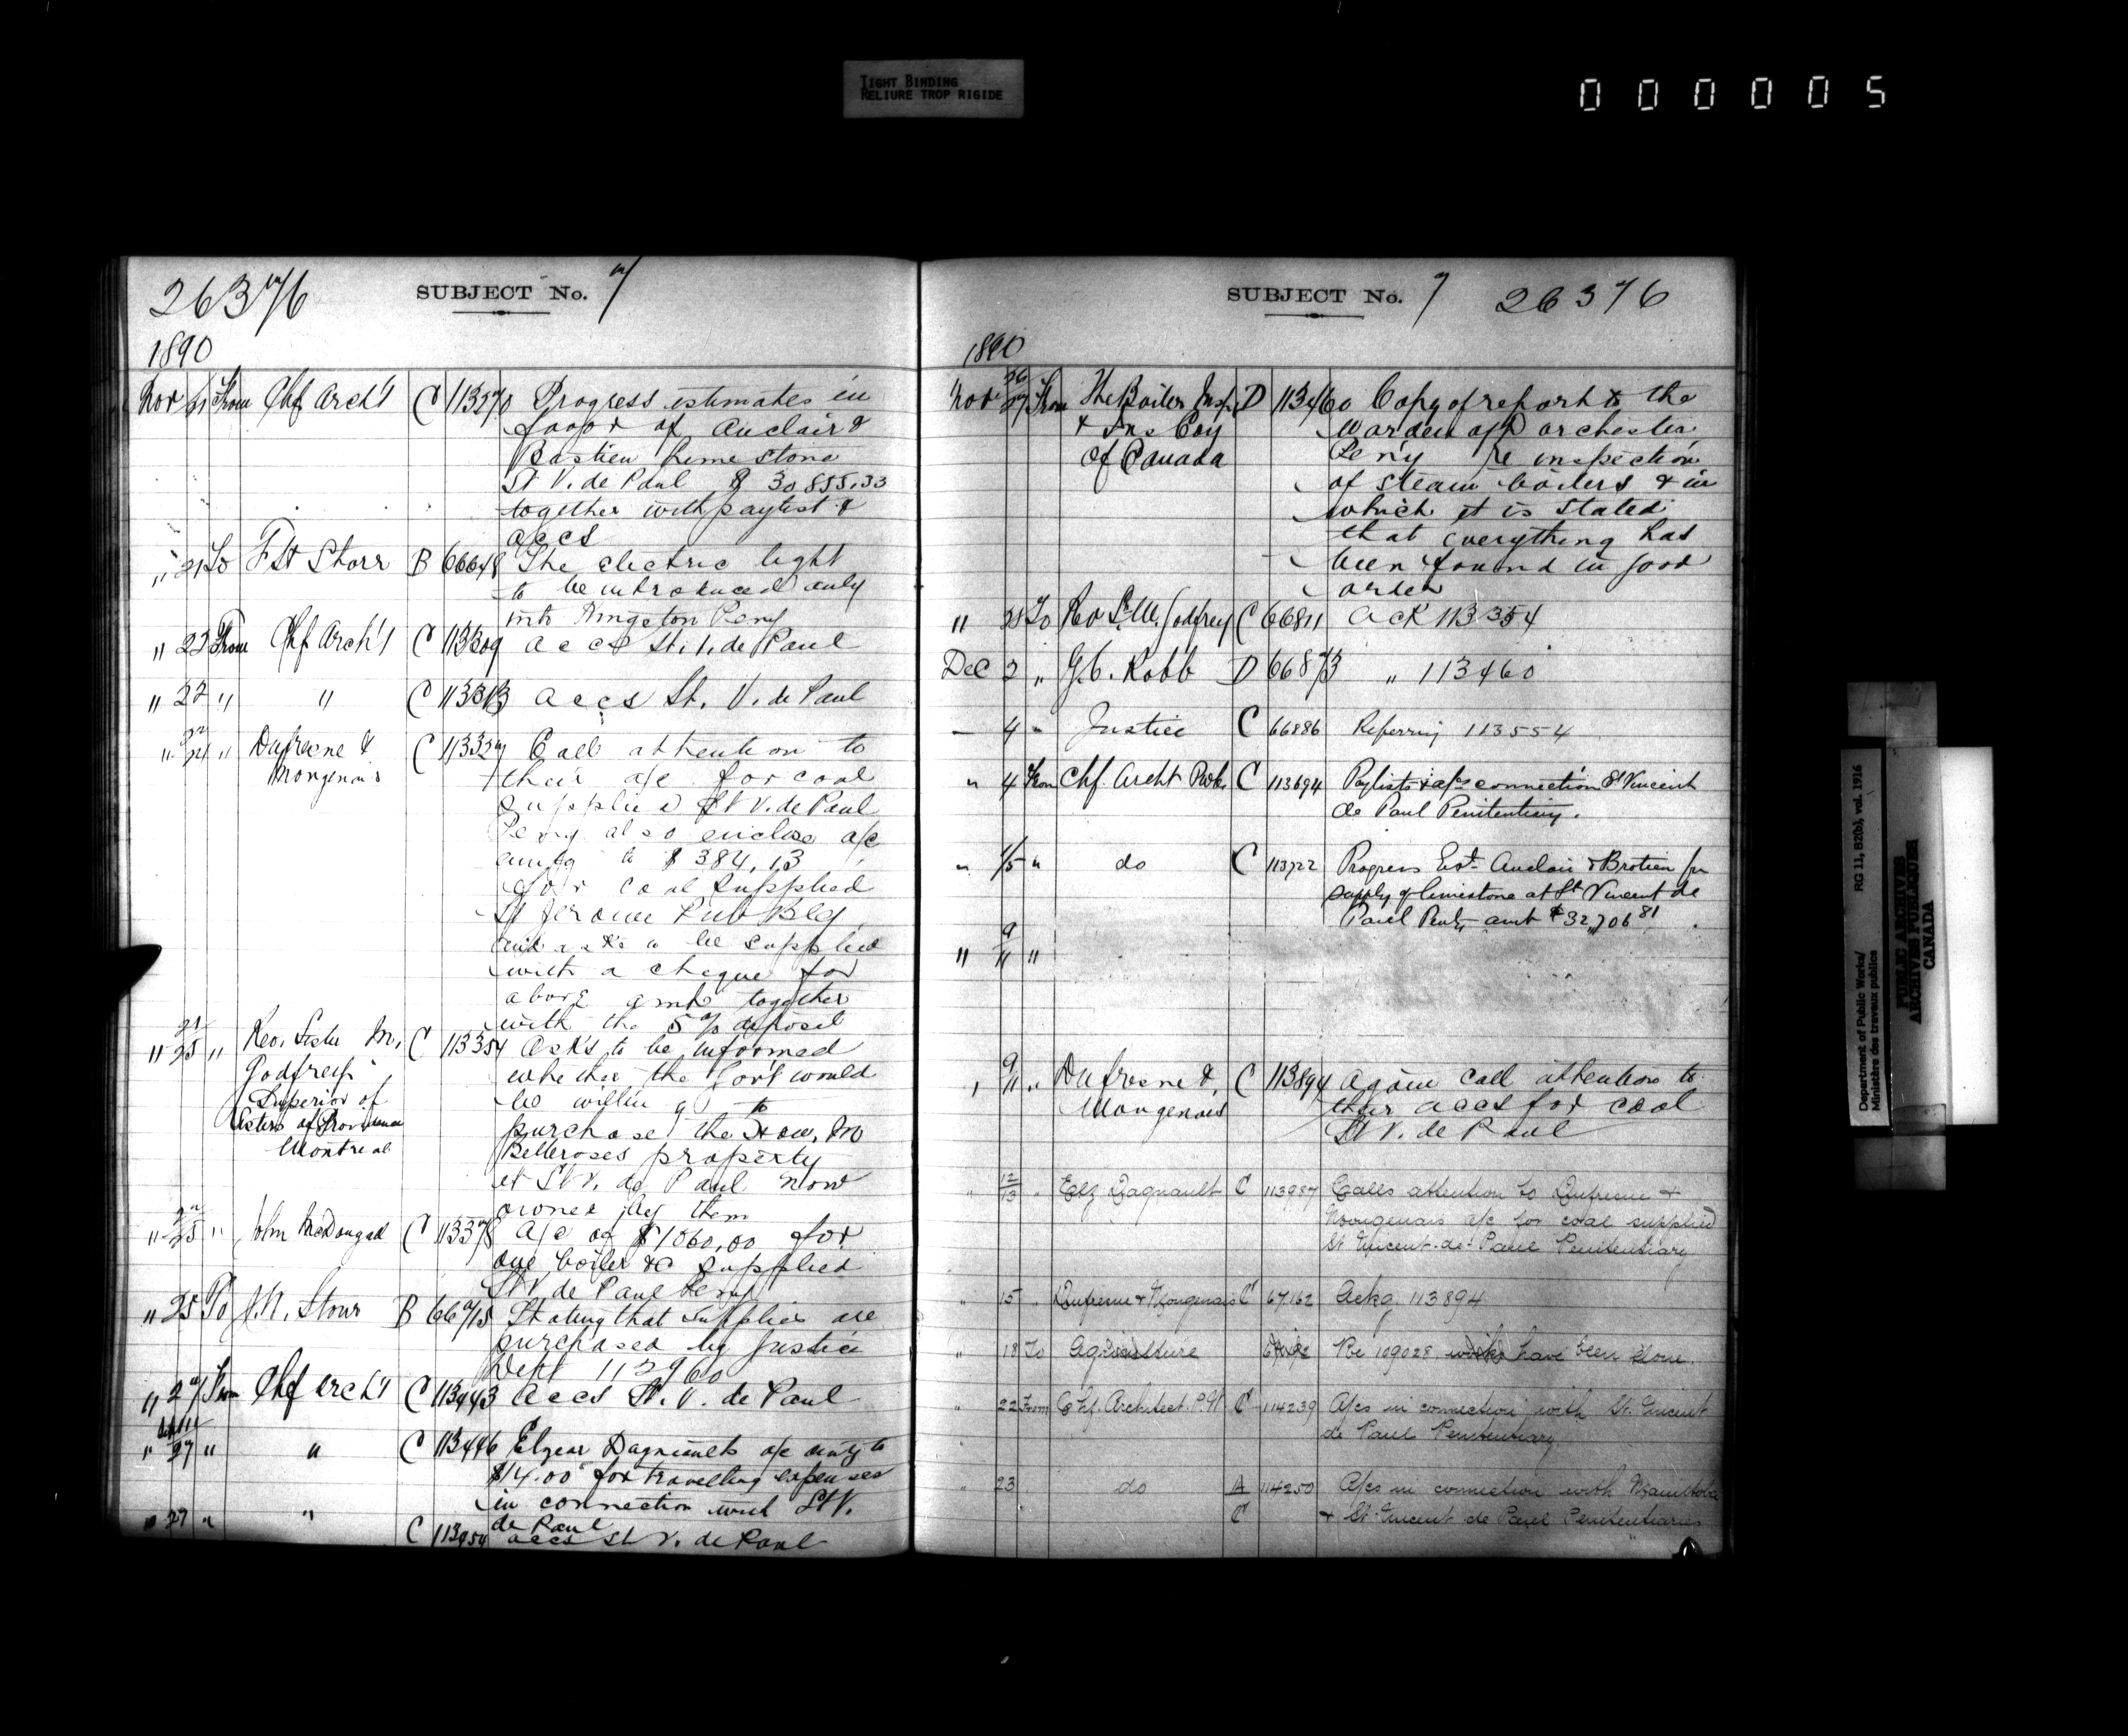 TIGHT BINDING
RELIURE TROP RIGIDE
000005
26376 SUBJECT No. 7
1890
Nov 21 From Chf Arch't C 113270 Progress estimates in
favor of Auclair &
Bastien lime stone
St V. de Paul $ 30855.33
together with paylist &
accs
" 21 To F Storr B 66648 The electric light
to be introduced only
into Kingston Peny
" 22 From Chf Arch't C 113309 accs St. V. de Paul
" 22 " " C 113313 accs St. V. de Paul
" 22/24 " Dufresne & C 113327 Call attention to
Mongenais their a/c for coal
supplied St V. de Paul
Peny also enclose a/c
amtg to $ 384,13
for coal supplied
St Jerome Pub Blg
and asks to be supplied
with a cheque for
above amt together
with the 5% deposit
" 21/25 " Rev. Sister M. C 113354 Asks to be informed
Godfrey whether the Govt would
Superior of be willing to
Sisters of Providence purchase the Hon. Mr
Montreal Belleroses property
at St V. de Paul now
owned by them
" 25 " John McDougal C 11337 A/c of $1060,00 for
one boiler &c supplied
St V. de Paul Peny
" 25 To B 66715 Stating that supplies are
purchased by Justice
Dept 112960
" 27 From Chf Arch't C 113443 accs St. V. de Paul
" 27 " " C 113446 Elzear Dagnault a/c amtg to
$14.00 for travelling expenses
in connection with St V.
de Paul
" 27 " " C 113454 accs St V. de Paul
SUBJECT No. 7 26376
1890
Nov 26/27 From The Boiler Insp. D 113460 Copy of report to the
& Ins Coy Warden of Dorchester
of Canada Peny re inspection
of steam boilers & in
which it is stated
that everything has
been found in good
order
" 28 To Rev Sr. M. Godfrey C 66811 ack 113354
Dec 2 " G.C. Robb D 66873 " 113460
" 4 " Justice C 66886 Referring 113554
" 4 From Chf. Archt Pwks C 113694 Paylists & a/cs connection St Vincent
de Paul Penitentiary.
" 4/5 " do C 113722 Progress Est. Auclair & Brotien for
supply of limestone at St Vincent de
Paul Peny amt $32,706 81
" 9/11 "
" 9/11 " Dufresne & C 113894 Again call attention to
Mongenais their accs for coal
St V. de Paul
" 12/13 " Elz Dagnault C 113987 Calls attention to Dufresne &
Mongenais a/c for coal supplied
St Vincent-de-Paul Penitentiary
" 15 " Dufresne & Mongenais C 67162 Ackg 113894
" 18 To Agriculture Re 109028 works have been done.
" 22 From Chf. Architect P.W. C 114239 A/cs in connection with St. Vincent
de Paul Penitentiary
" 23 do A 114250 A/cs in connection with Manitoba
C & St. Vincent de Paul Penitentiaries
Department of Public Works/
Ministère des travaux publics
RG 11, B2(b), vol. 1916
PUBLIC ARCHIVES
ARCHIVES PUBLIQUES
CANADA